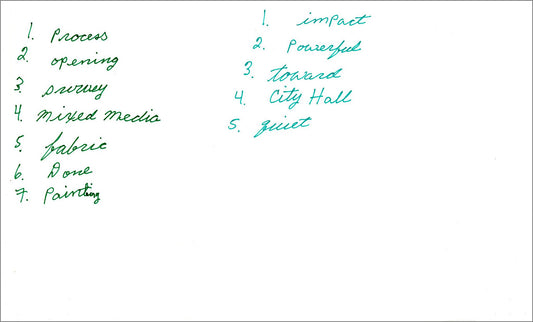 1. Process
2. opening
3. survey
4. Mixed Media
5. fabric
6. Done
7. Painting
1. impact
2. Powerful
3. toward
4. City Hall
5. quiet